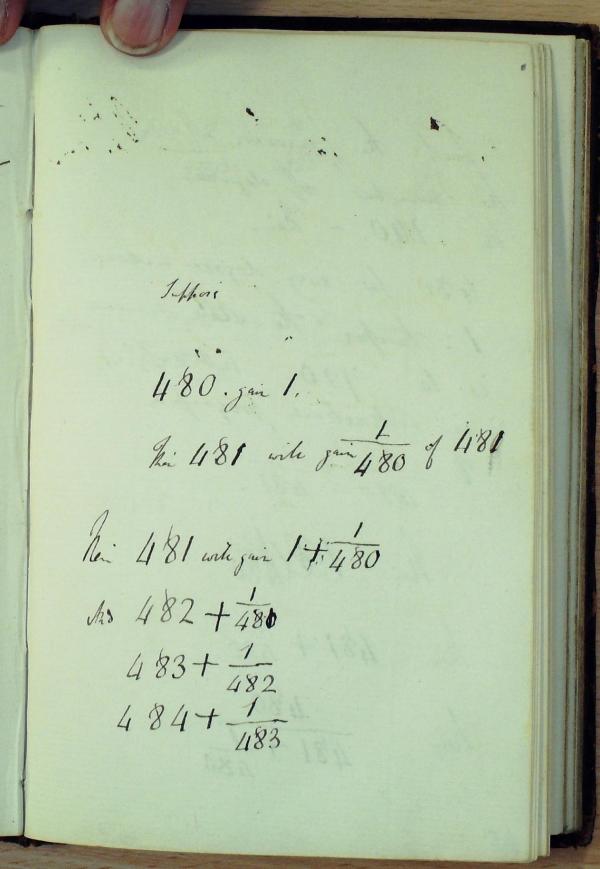 Suppose
480. gain 1.
Then 481 will gain 1/480 of 481
Then 481 will gain 1 + 1/480
And 482 + 1/481
483 + 1/482
484 + 1/483